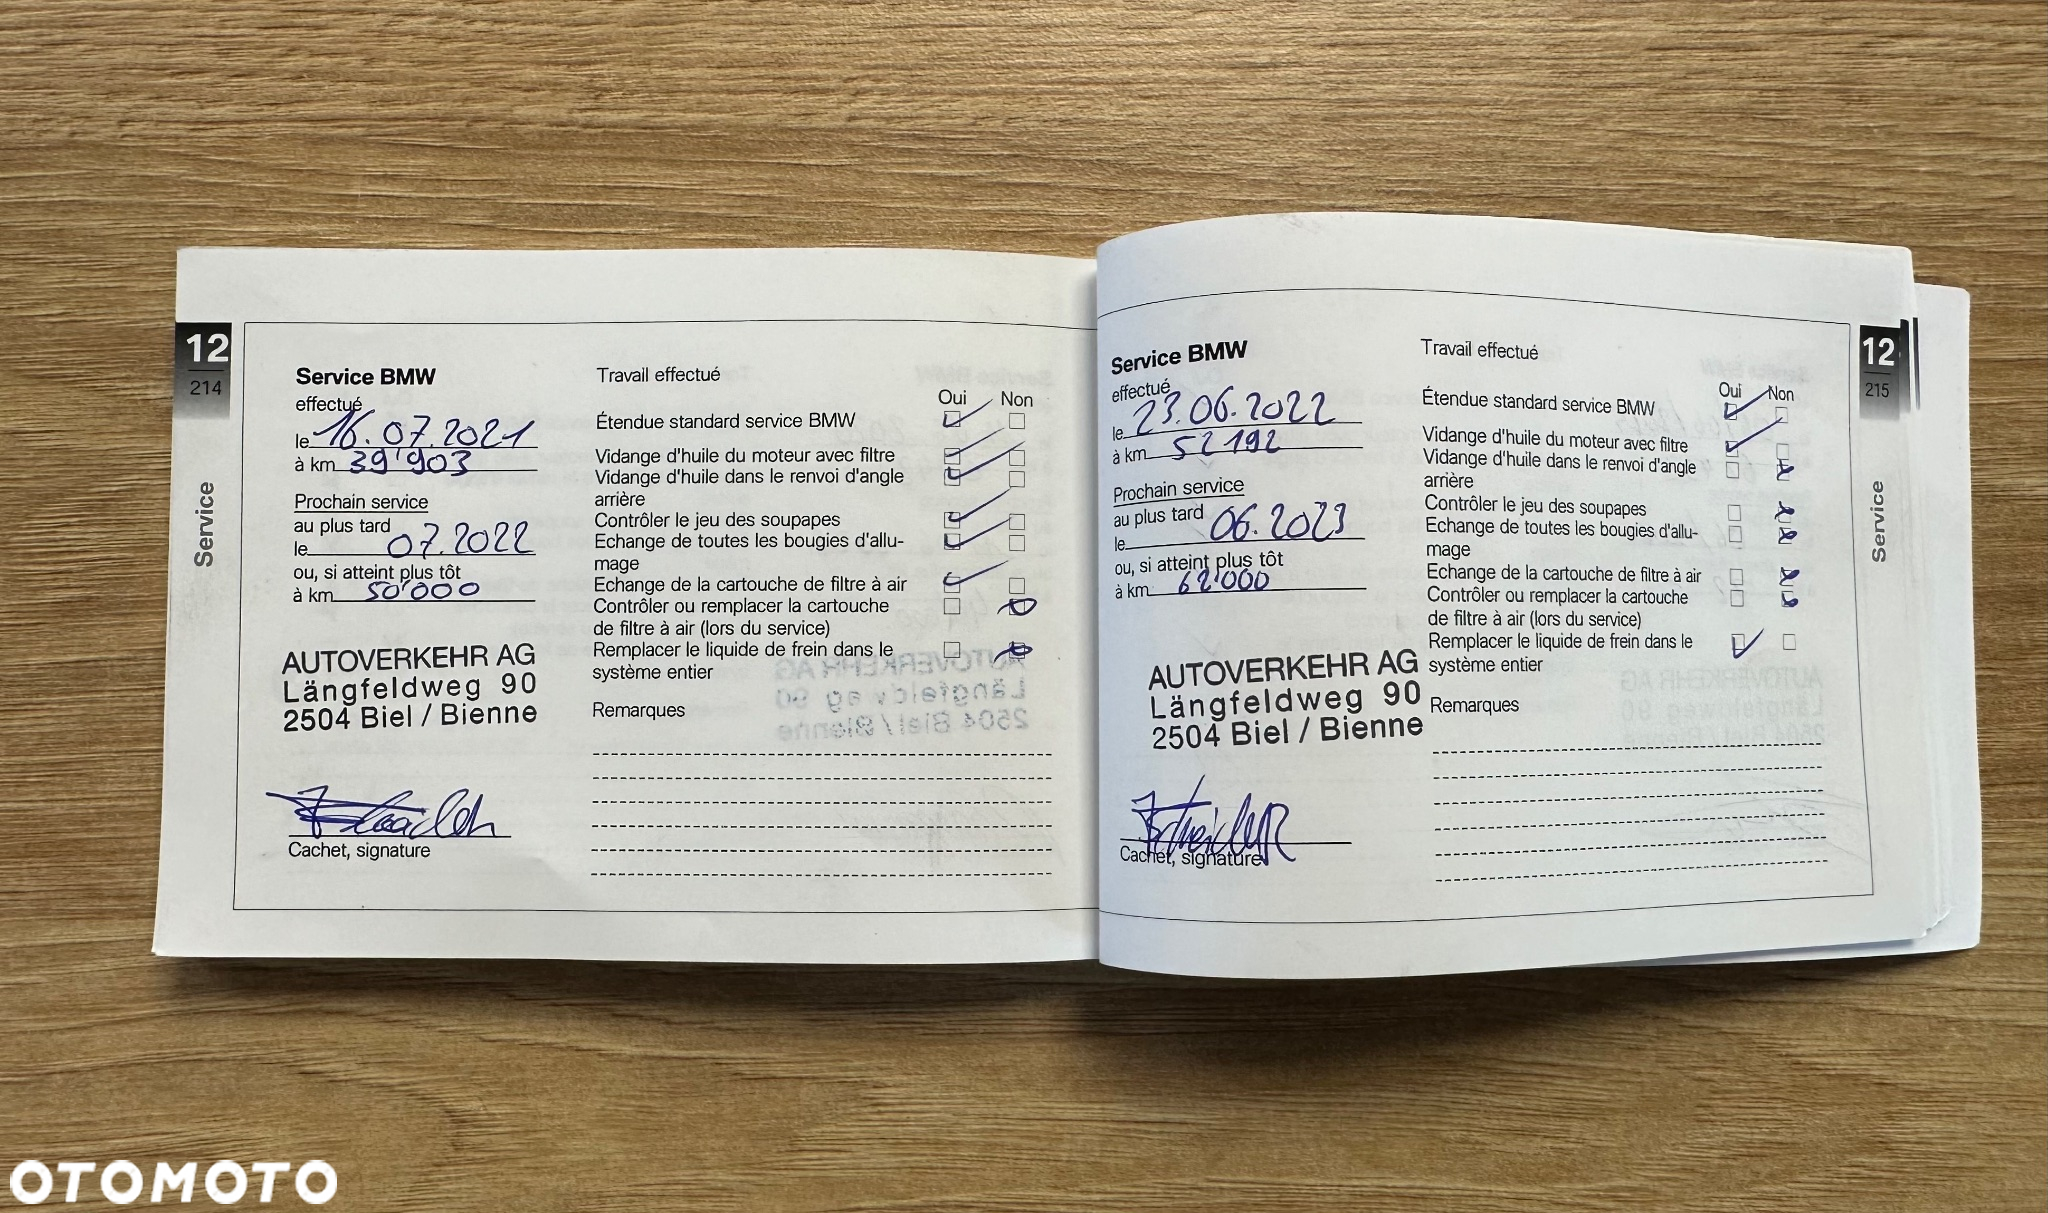 12
214
Service
Service BMW
effectué
le 16.07.2021
à km 39'903
Prochain service
au plus tard
le 07.2022
ou, si atteint plus tôt
à km 50'000
AUTOVERKEHR AG
Längfeldweg 90
2504 Biel / Bienne
Cachet, signature
Travail effectué
Oui Non
Étendue standard service BMW
Vidange d'huile du moteur avec filtre
Vidange d'huile dans le renvoi d'angle
arrière
Contrôler le jeu des soupapes
Echange de toutes les bougies d'allu-
mage
Echange de la cartouche de filtre à air
Contrôler ou remplacer la cartouche
de filtre à air (lors du service)
Remplacer le liquide de frein dans le
système entier
Remarques
Service BMW
effectué
le 23.06.2022
à km 52192
Prochain service
au plus tard
le 06.2023
ou, si atteint plus tôt
à km 62'000
AUTOVERKEHR AG
Längfeldweg 90
2504 Biel / Bienne
Cachet, signature
Travail effectué
Oui Non
Étendue standard service BMW
Vidange d'huile du moteur avec filtre
Vidange d'huile dans le renvoi d'angle
arrière
Contrôler le jeu des soupapes
Echange de toutes les bougies d'allu-
mage
Echange de la cartouche de filtre à air
Contrôler ou remplacer la cartouche
de filtre à air (lors du service)
Remplacer le liquide de frein dans le
système entier
Remarques
12
215
Service
OTOMOTO